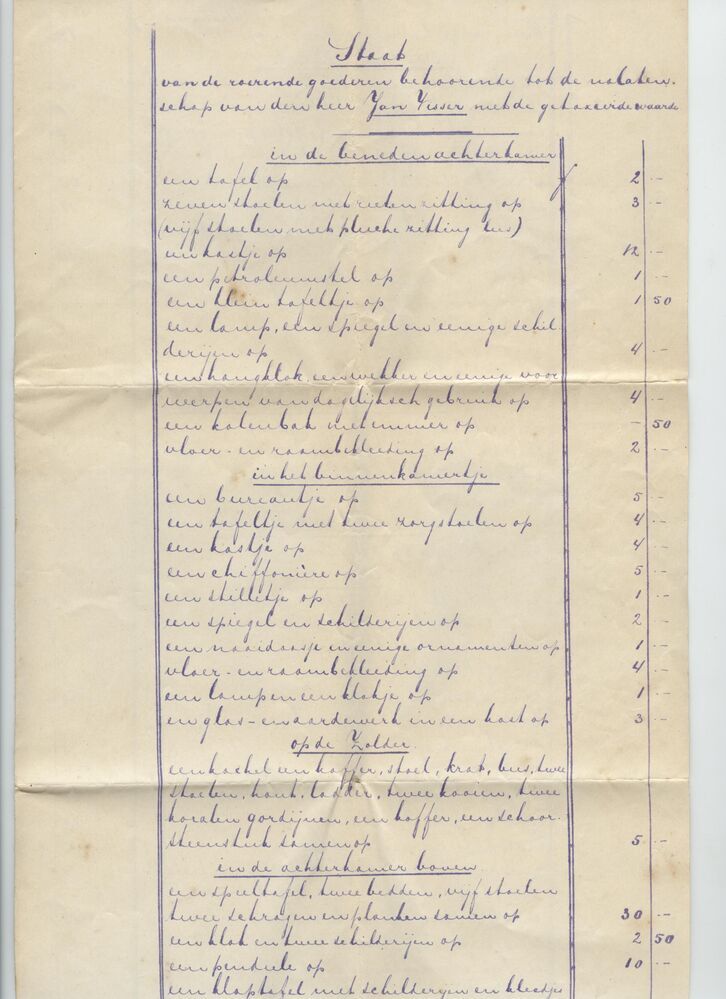 Staat
van de roerende goederen behoorende tot de nalaten-
schap van den heer Jan Visser met de getaxeerde waarde
in de beneden achterkamer
een tafel op f 2 . -
zeven stoelen met rieten zitting op 3 . -
(vijf stoelen met pluche zitting  )
een kastje op 12 . -
een petroleumstel op 1 . -
een klein tafeltje op 1 50
een lamp, een spiegel en eenige schil-
derijen op 4 . -
een hangklok, een wekker en eenige voor
werpen van dagelijksch gebruik op 4 . -
een kolenbak met emmer op - 50
vloer- en raambekleeding op 2 . -
in het binnenkamertje
een bureautje op 5 . -
een tafeltje met twee zorgstoelen op 4 . -
een kastje op 4 . -
een chiffonière op 5 . -
een stilletje op 1 . -
een spiegel en schilderijen op 2 . -
een naaidoosje en eenige ornamenten op 1 . -
vloer- en raambekleeding op 4 . -
een lamp en een klokje op 1 . -
en glas- en aardewerk in een kast op 3 . -
op de Zolder
een kachel een koffer, stoel, krat, bus, twee
stoelen, hout, ladder, twee kooien, twee
koralen gordijnen, een koffer, een schoor-
steenstuk samen op 5 . -
in de achterkamer boven
een speeltafel, twee bedden, vijf stoelen
twee schragen en planken samen op 30 . -
een klok en twee schilderijen op 2 50
een pendule op 10 . -
een klaptafel met schilderyen en kleedjes